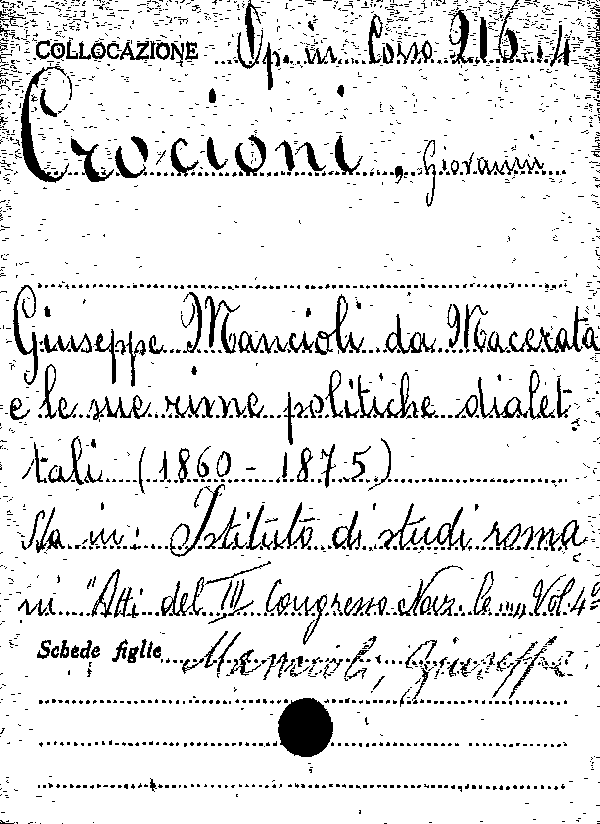 COLLOCAZIONE Op. in Corso 216.4
Crocioni, Giovanni
Giuseppe Mancioli da Macerata
e le sue rime politiche dialet-
tali (1860-1875)
Sta in: Istituto di studi roma
ni "Atti del IV Congresso Naz.le...." Vol. 4º
Schede figlie Mancioli, Giuseppe